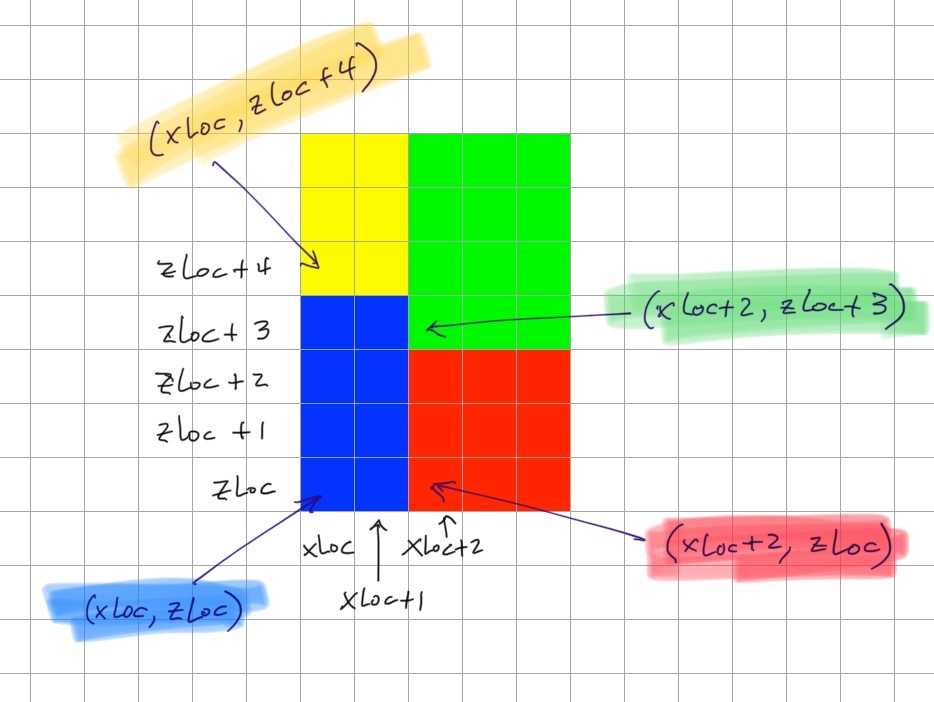 (xLoc, zLoc+4)
zLoc+4
(xLoc+2, zLoc+3)
zLoc+3
zLoc+2
zLoc+1
zLoc
xLoc
xLoc+2
(xLoc+2, zLoc)
xLoc+1
(xLoc, zLoc)